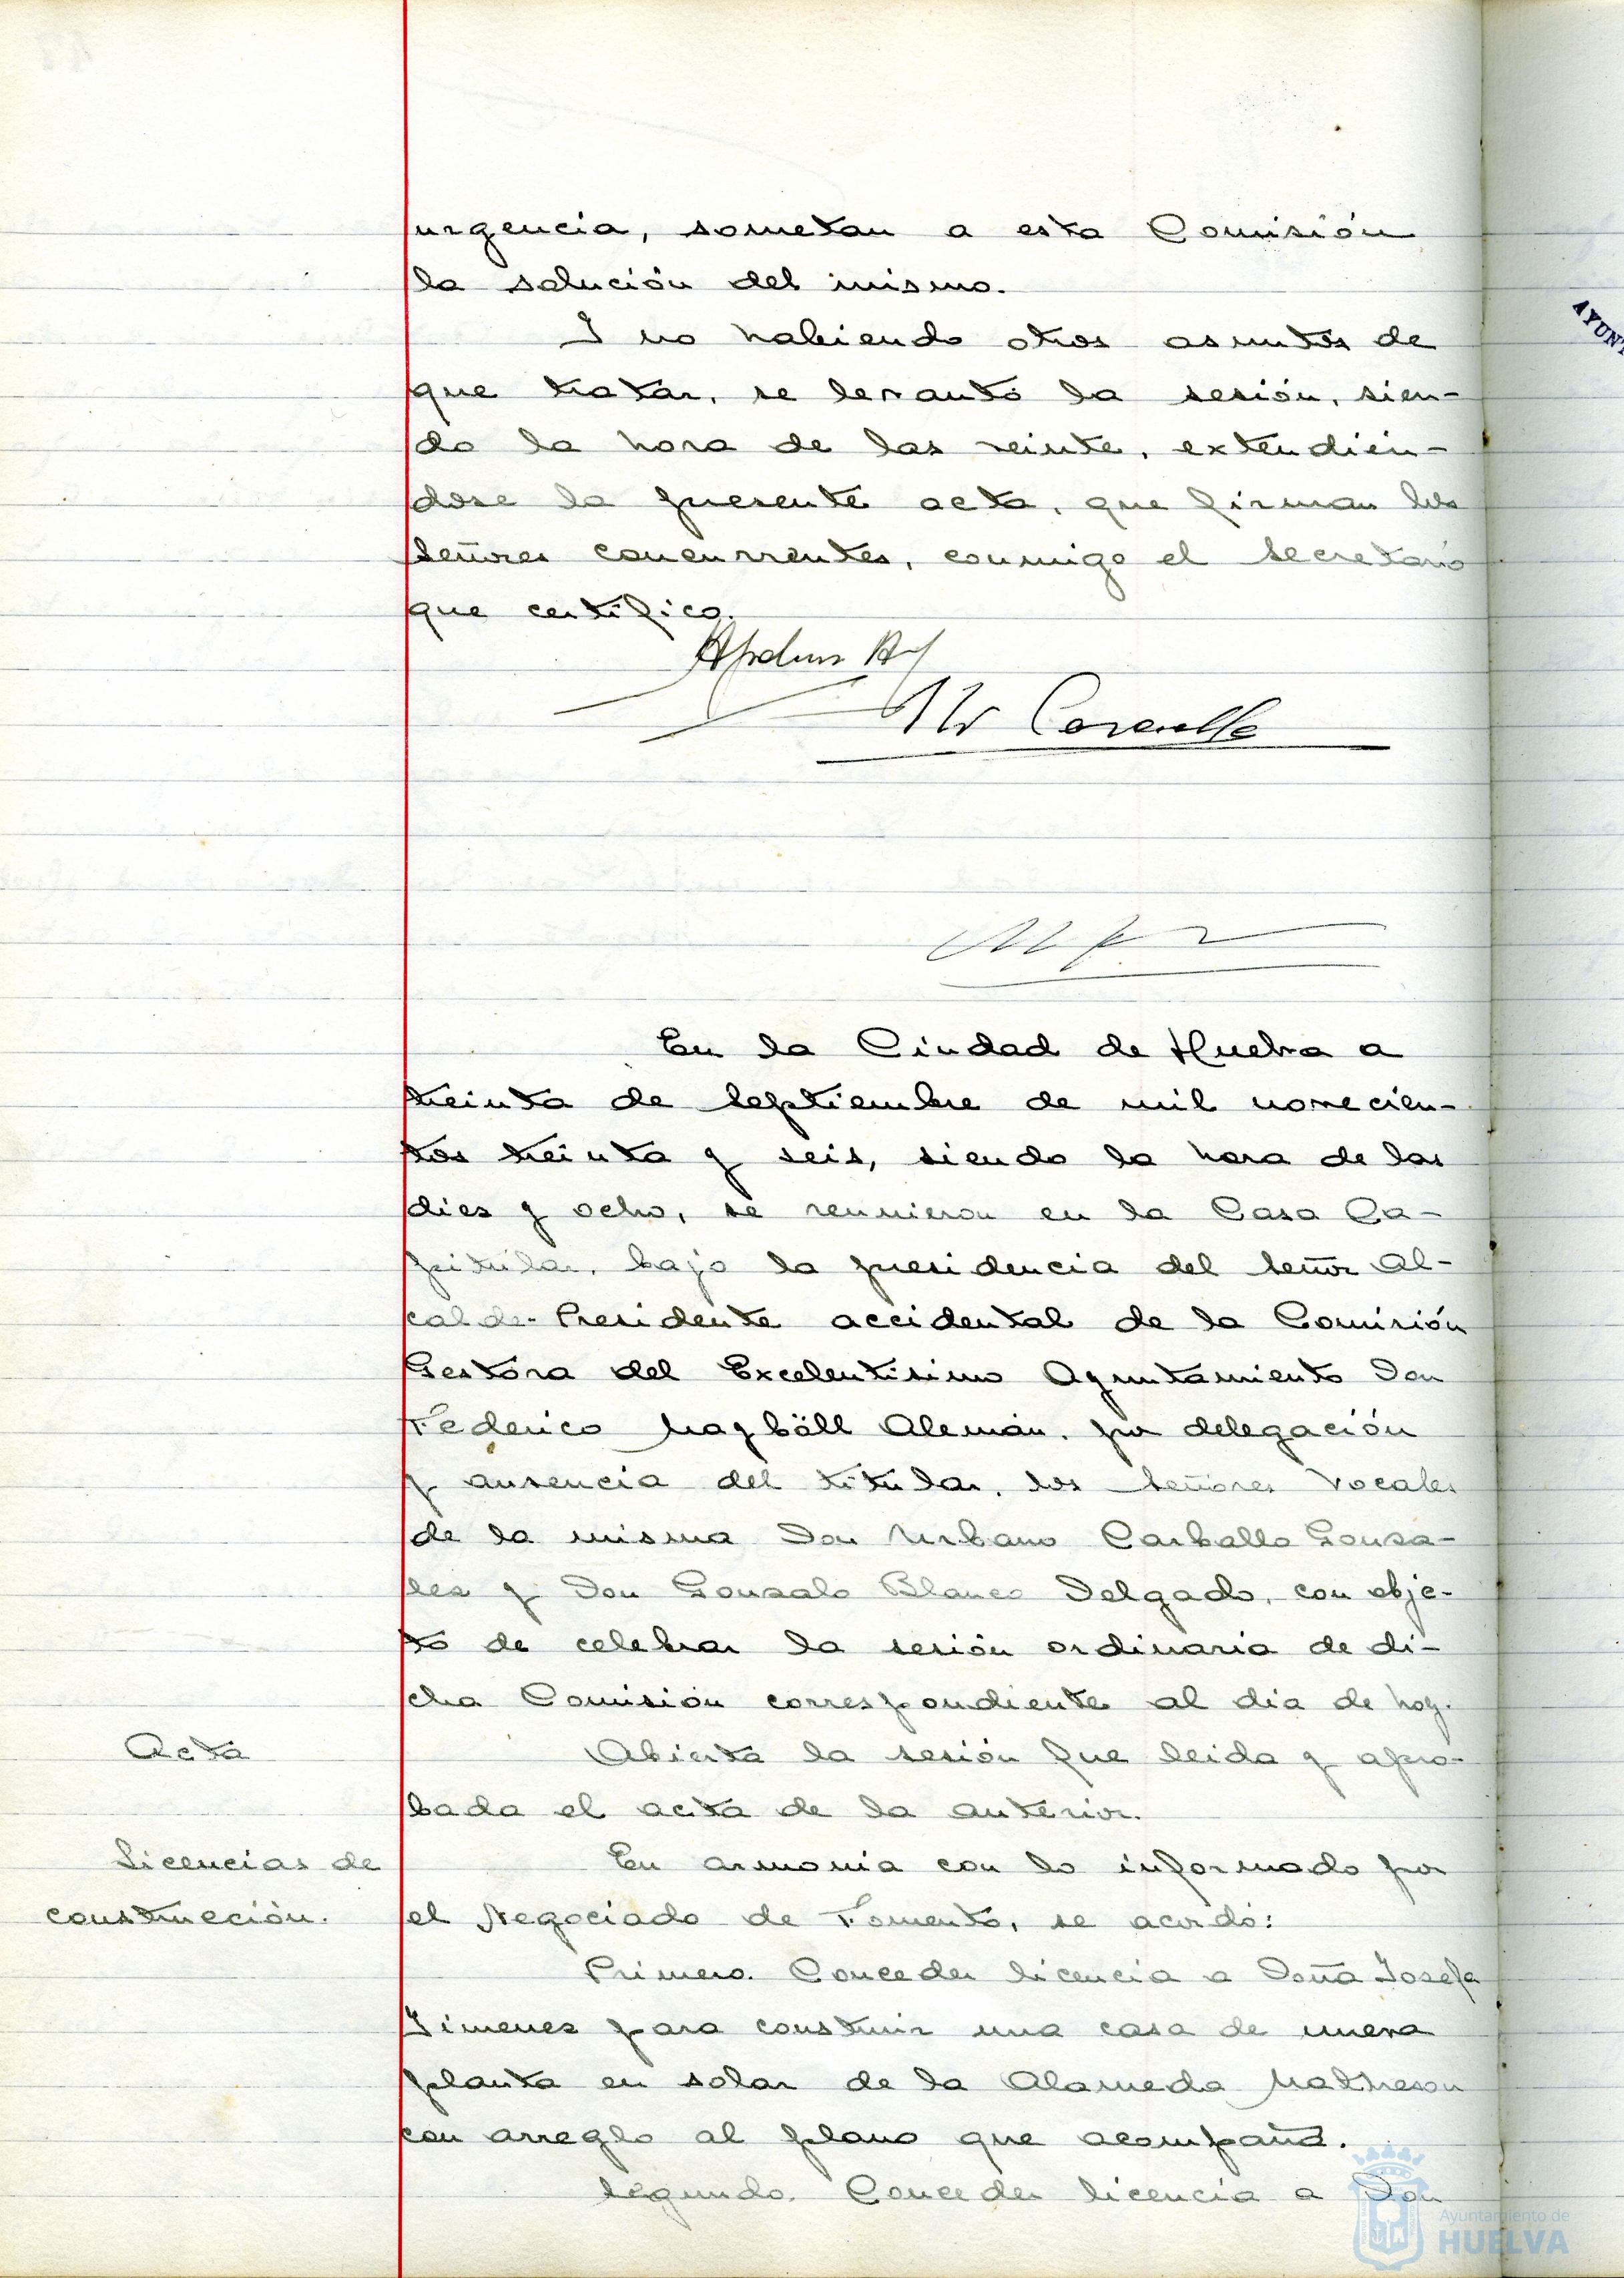 urgencia, sometan a esta Comisión
la solución del mismo.
Y no habiendo otros asuntos de
que tratar, se levantó la sesión, sien-
do la hora de las veinte, extendién-
dose la presente acta, que firman los
Señores concurrentes, conmigo el Secretario
que certifico.
En la Ciudad de Huelva a
treinta de Septiembre de mil novecien-
tos treinta y seis, siendo la hora de las
dies y ocho, se reunieron en la Casa Ca-
pitular, bajo la presidencia del Señor Al-
calde-Presidente accidental de la Comisión
Gestora del Excelentísimo Ayuntamiento Don
Federico Mayböll Alemán, por delegación
y ausencia del titular, los Señores Vocales
de la misma Don Urbano Carballo Gonsa-
les y Don Gonsalo Blanco Delgado, con obje-
to de celebrar la sesión ordinaria de di-
cha Comisión correspondiente al día de hoy.
Acta
Abierta la sesión fue leida y apro-
bada el acta de la anterior.
Licencias de
construcción.
En armonía con lo informado por
el Negociado de Fomento, se acordó:
Primero. Conceder licencia a Doña Josefa
Jimenes para construir una casa de nueva
planta en solar de la Alameda Matheson
con arreglo al plano que acompaña.
Segundo. Conceder licencia a Don
AYUNT
Ayuntamiento de
HUELVA